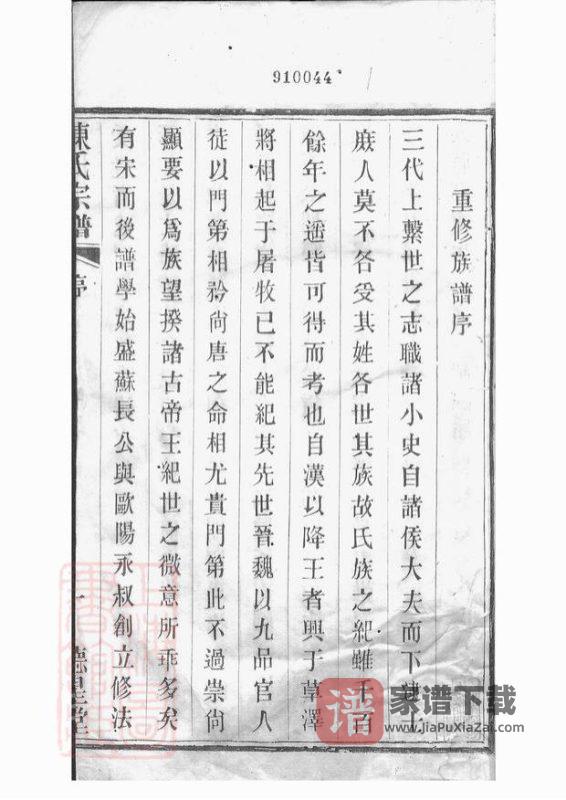 910044
重修族譜序
三代上繫世之志職諸小史自諸侯大夫而下迨士
庶人莫不各受其姓各世其族故氏族之紀雖千百
餘年之遥皆可得而考也自漢以降王者興于草澤
將相起于屠牧已不能紀其先世晉魏以九品官人
徒以門第相矜尙唐之命相尤貴門第此不過崇尙
顯要以爲族望揆諸古帝王紀世之微意所乖多矣
有宋而後譜學始盛蘇長公與歐陽永叔創立修法
陳氏宗譜
序
一
德星堂
谱
家谱下载
www.JiaPuXiaZai.com